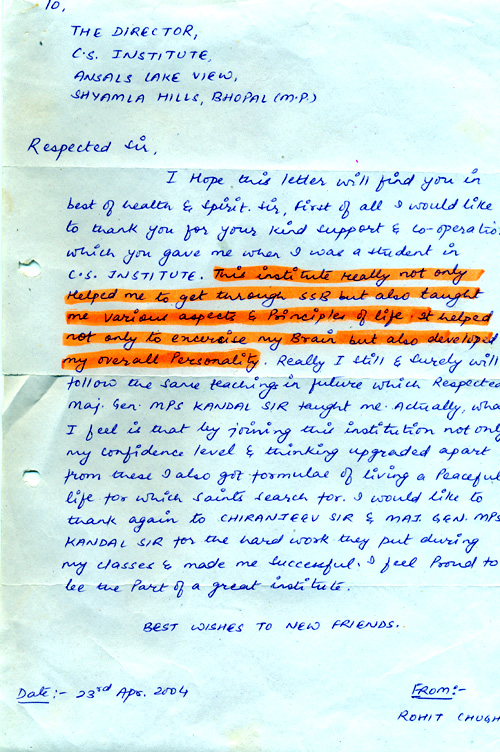 To,
THE DIRECTOR,
C.S. INSTITUTE,
ANSALS LAKE VIEW,
SHYAMLA HILLS, BHOPAL (M.P.)
Respected Sir,
I Hope this letter will find you in
best of health & Spirit. Sir, first of all I would like
to thank you for your kind support & co-operatio
which you gave me when I was a student in
C.S. INSTITUTE. This institute really not only
Helped me to get through SSB but also taught
me various aspects & Principles of life. It helped
not only to excercise my Brain but also developed
my overall Personality. Really I still & Surely will
follow the same teaching in future which Respected
Maj. Gen. MPS KANDAL SIR taught me. Actually, wha
I feel is that by joining this institution not onl
my confidence level & thinking upgraded apart
from these I also got formulae of living a Peaceful
life for which Saints Search for. I would like to
thank again to CHIRANJEEV SIR & MAJ. GEN. MPS
KANDAL SIR for the hard work they put during
my classes & made me successful. I feel Proud to
be the Part of a great institute.
BEST WISHES TO NEW FRIENDS..
Date:- 23rd Apr. 2004
FROM:-
ROHIT CHUGH